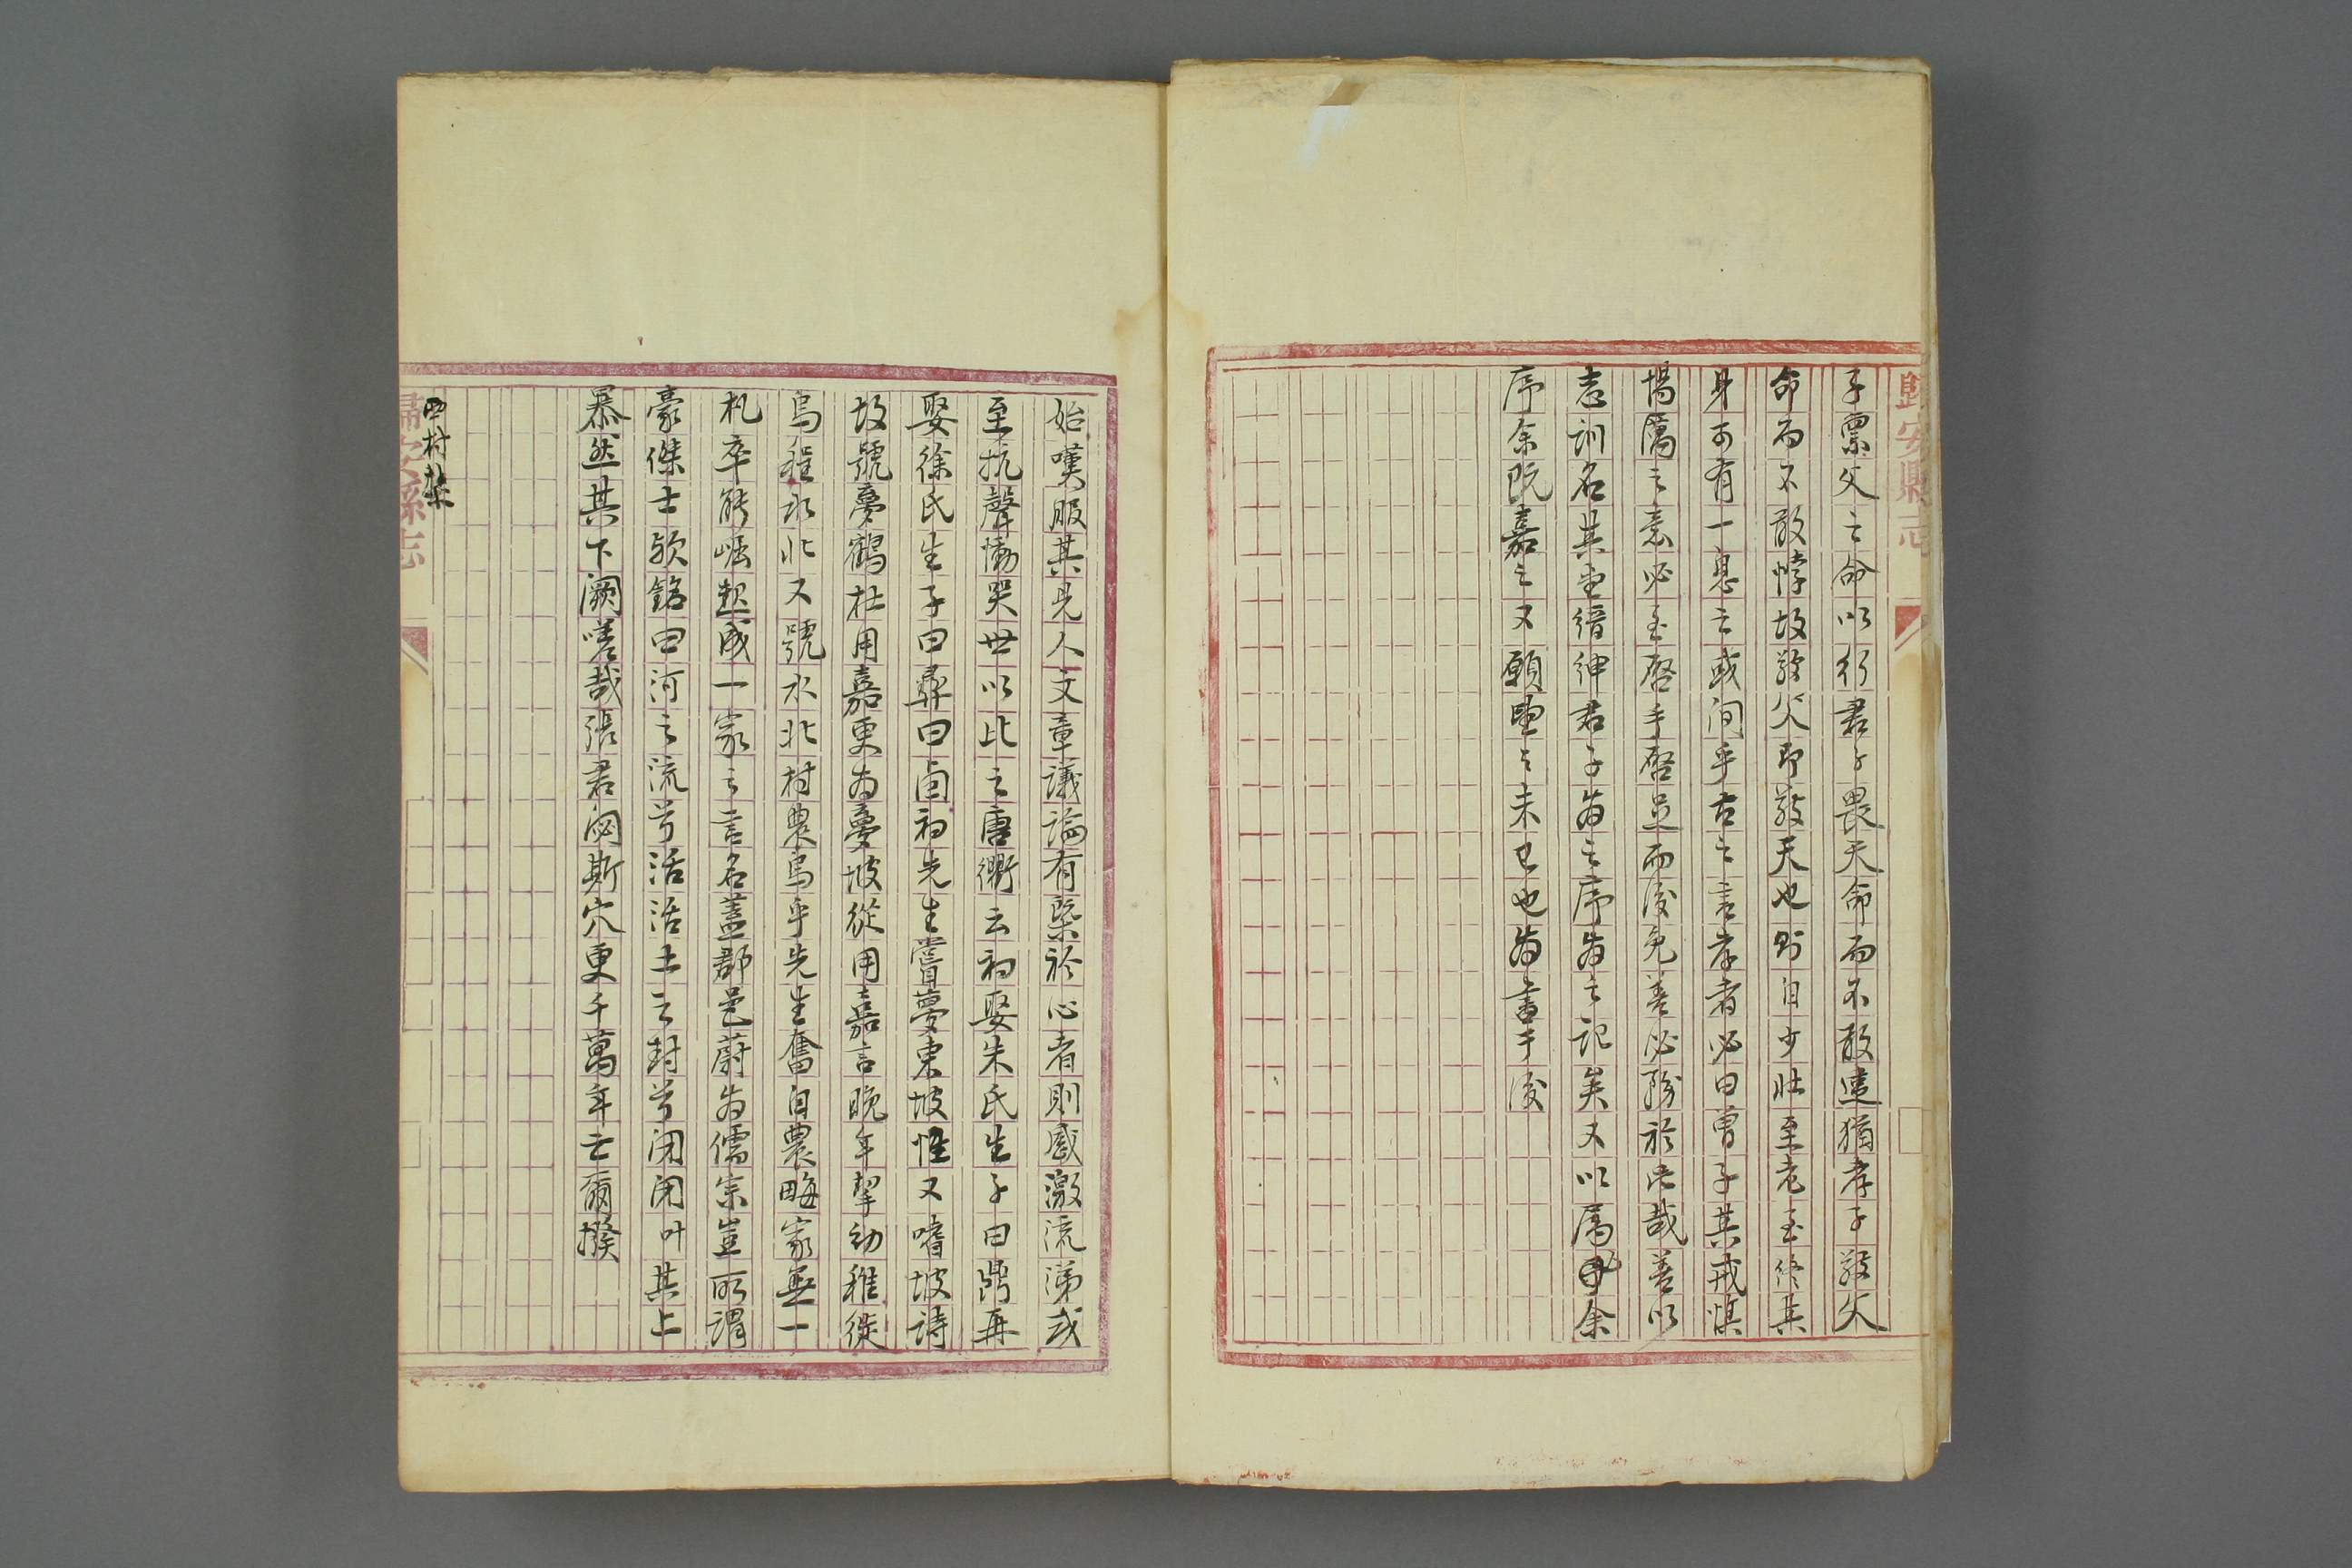 歸安縣志
子稟父之命以行君子畏天命而不敢違猶孝子敬父
命而不敢悖故敬父即敬天也則自少壯至老至終其
身可有一息之或间乎古之言孝者必曰曾子其戒慎
惕厲之意必至啓手啓足而後免善必務於此哉善以
志訓名其堂縉紳君子為之序為之記矣又以属余
序余既嘉之又願望之未已也為書于後
始嘆服其見人文章議論有槩於心者則感激流涕或
至抗聲慟哭世以比之唐衢云初娶朱氏生子曰鼎再
娶徐氏生子曰彝曰卣初先生嘗夢東坡惟又嗜坡詩
故號夢鶴杜用嘉更為夢坡從用嘉言晚年挈幼稚徙
烏程水北又號水北村農烏乎先生奮自農畮家無一
札卒能崛起成一家之言名蓋郡邑蔚為儒宗豈所謂
豪傑士欤銘曰河之流兮活活土之封兮闭闭叶其上
暴然其下濶嗟哉張君閟斯穴更千萬年亡爾撥
歸安縣志
西村集